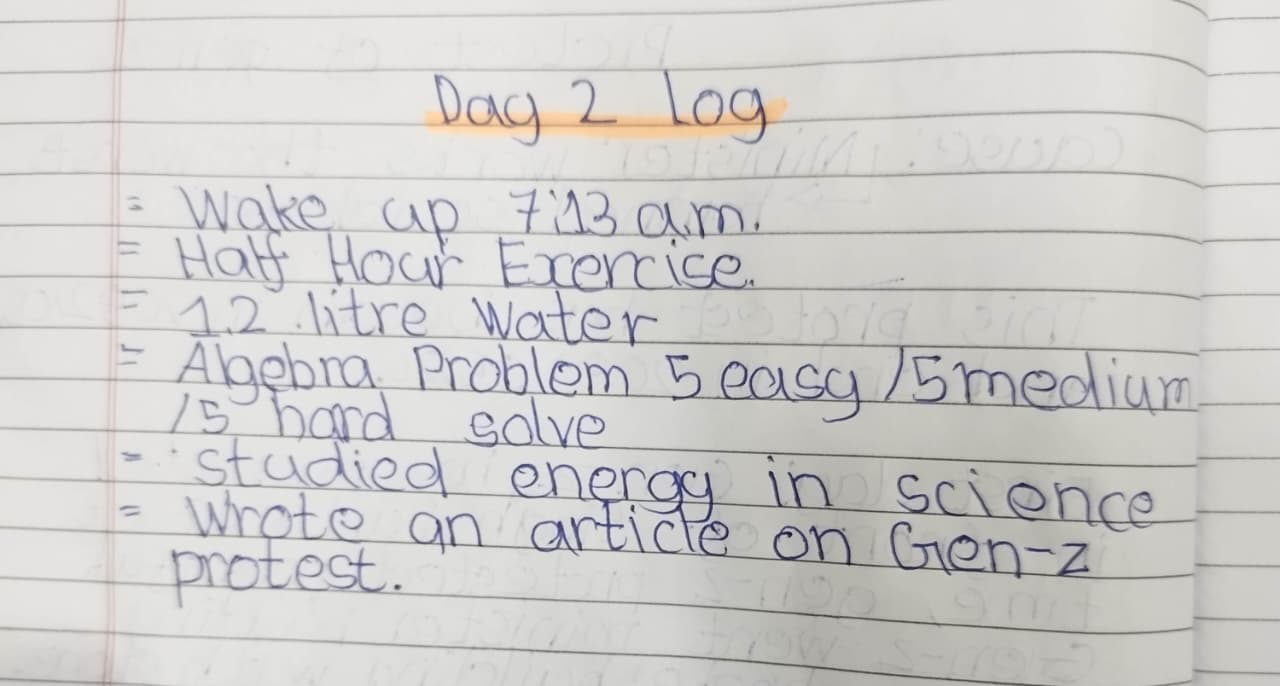 Day 2 log
= Wake up 7:13 a.m.
= Half Hour Exercise.
= 1.2 litre Water
= Algebra Problem 5 easy /5 medium
/5 hard solve
= studied energy in science
= Wrote an article on Gen-z
protest.